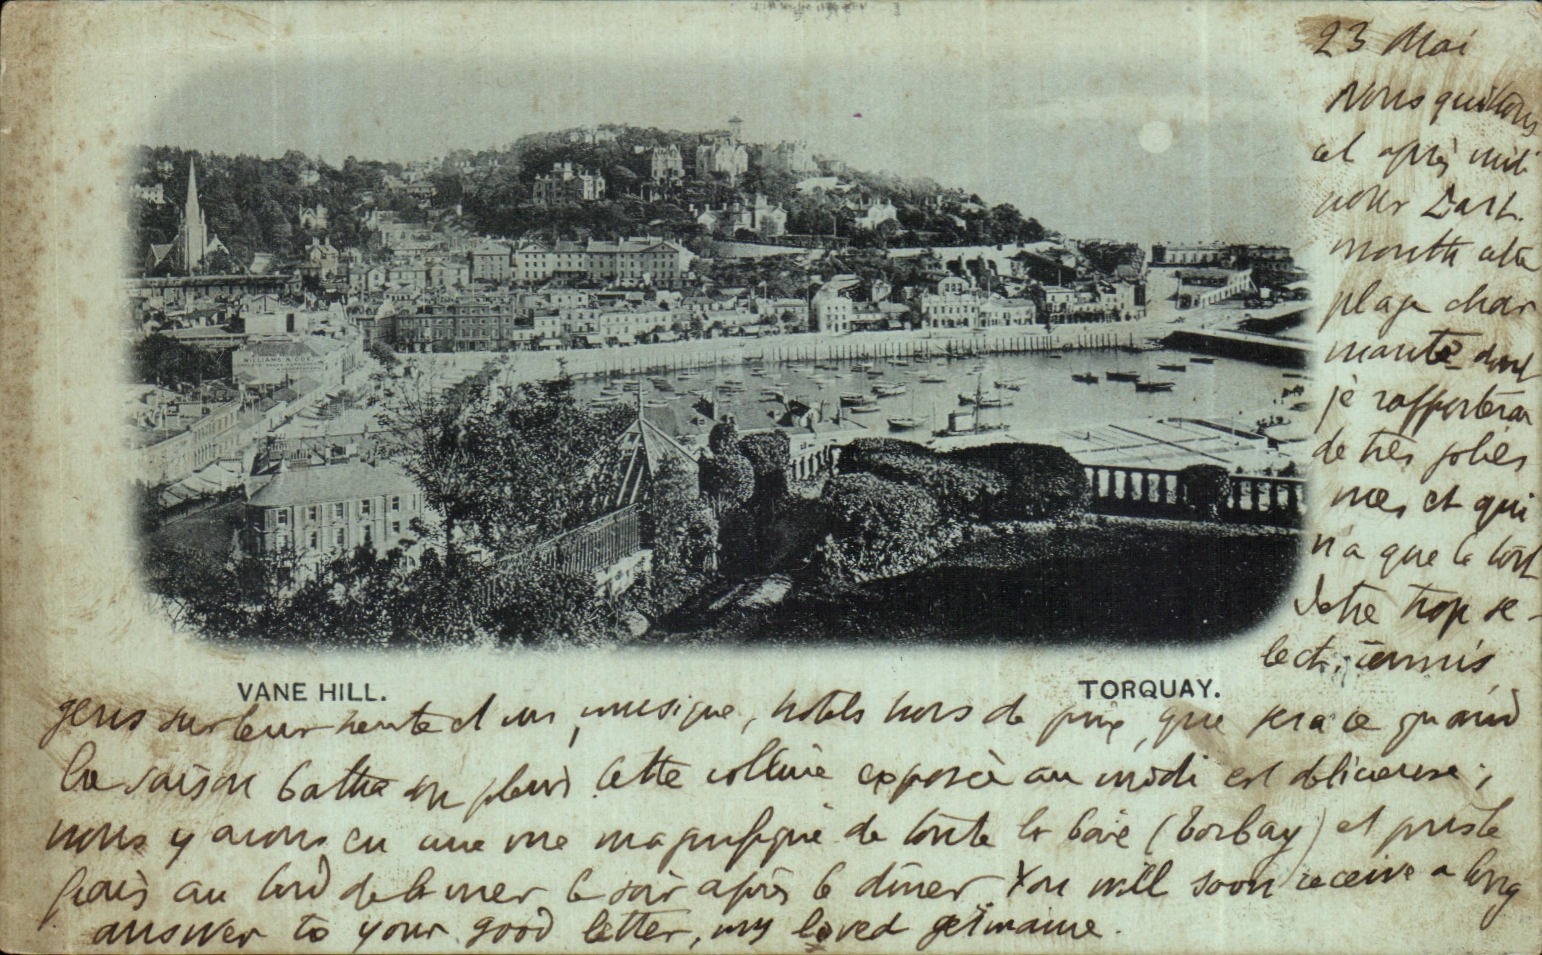 23 Mai
Nous quittons
cet après midi
pour Dart.
mouth cette
plage char
mante dont
je rapporterai
de très jolies
vues et qui
n'a que le tort
d'être trop se-
lect;
gens sur leur musique, hotels hors de prix, que sera ce quand
la saison battra en plein Cette colline exposée au midi est délicieuse;
nous y avons eu une vue magnifique de toute la baie (Torbay) et
frais au bord de la mer le soir après le dîner You will soon receive a long
answer to your good letter, my loved germaine.
VANE HILL. TORQUAY.
WILLIAMS & COX